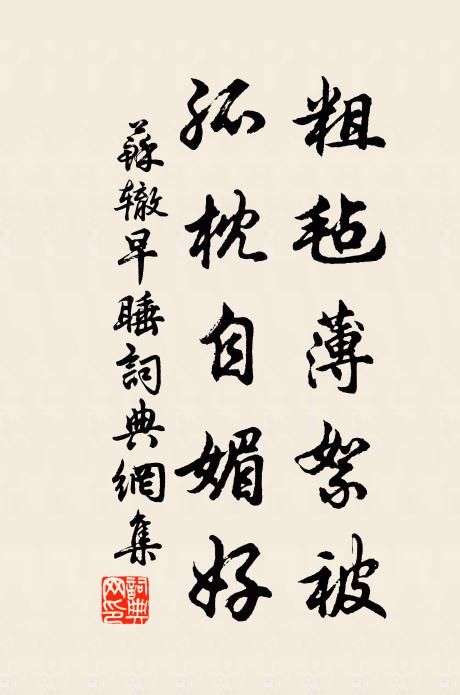 粗毡薄絮被
孤枕自媚好
蘇辙早睡詞典網集
詞典
网印